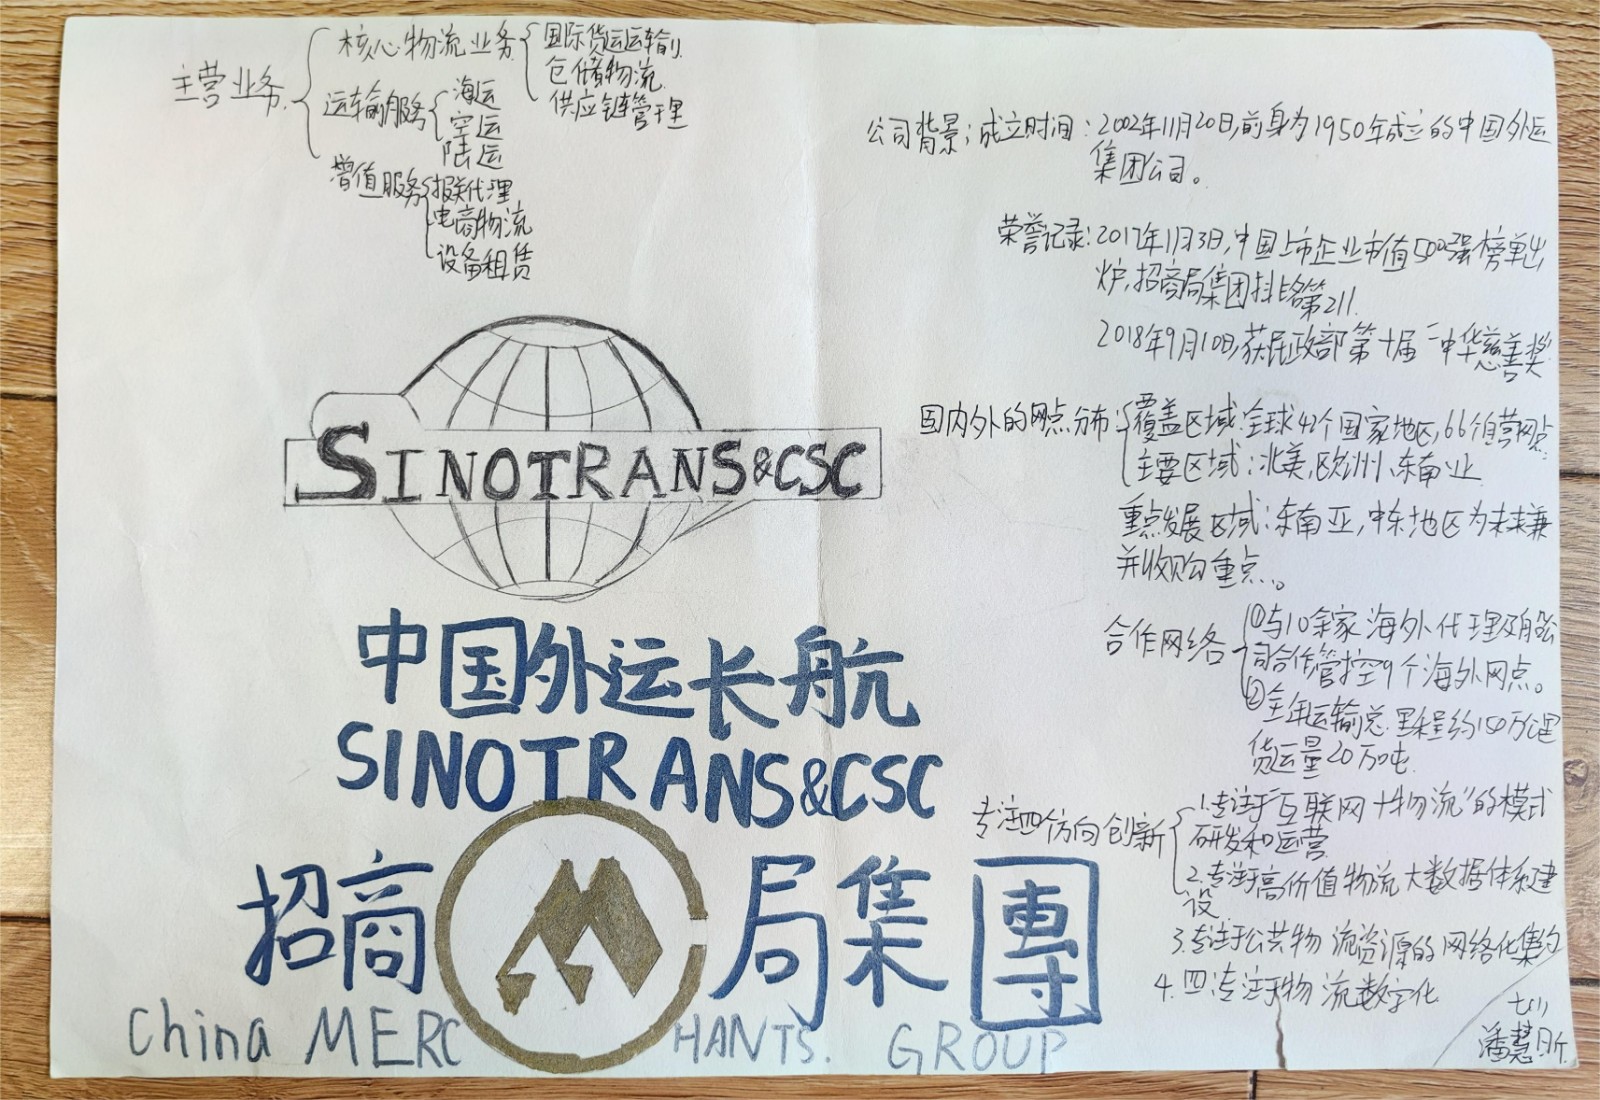 主营业务
核心物流业务
国际货运运输
仓储物流
供应链管理
运输服务
海运
空运
陆运
增值服务
报关代理
电商物流
设备租赁
公司背景：成立时间：2002年11月20日，前身为1950年成立的中国外运
集团公司。
荣誉记录：2017年11月3日，中国上市企业市值500强榜单出
炉，招商局集团排名第211.
2018年9月10日，获民政部第十届"中华慈善奖
国内外的网点分布：
覆盖区域：全球42个国家地区，66个自营网点
主要区域：北美、欧洲、东南亚
重点发展区域：东南亚，中东地区为未来兼
并收购重点。
合作网络
①与10余家海外代理及船公
司合作管控9个海外网点。
②全年运输总里程约150万公里
货运量20万吨
专注四方向创新
1.专注于"互联网+物流"的模式
研发和运营
2.专注于高价值物流大数据体系建
设
3.专注于公共物流资源的网络化集约
4.四专注于物流数字化
SINOTRANS&CSC
中国外运长航
SINOTRANS&CSC
招商局集團
China MERCHANTS. GROUP
潘慧昕